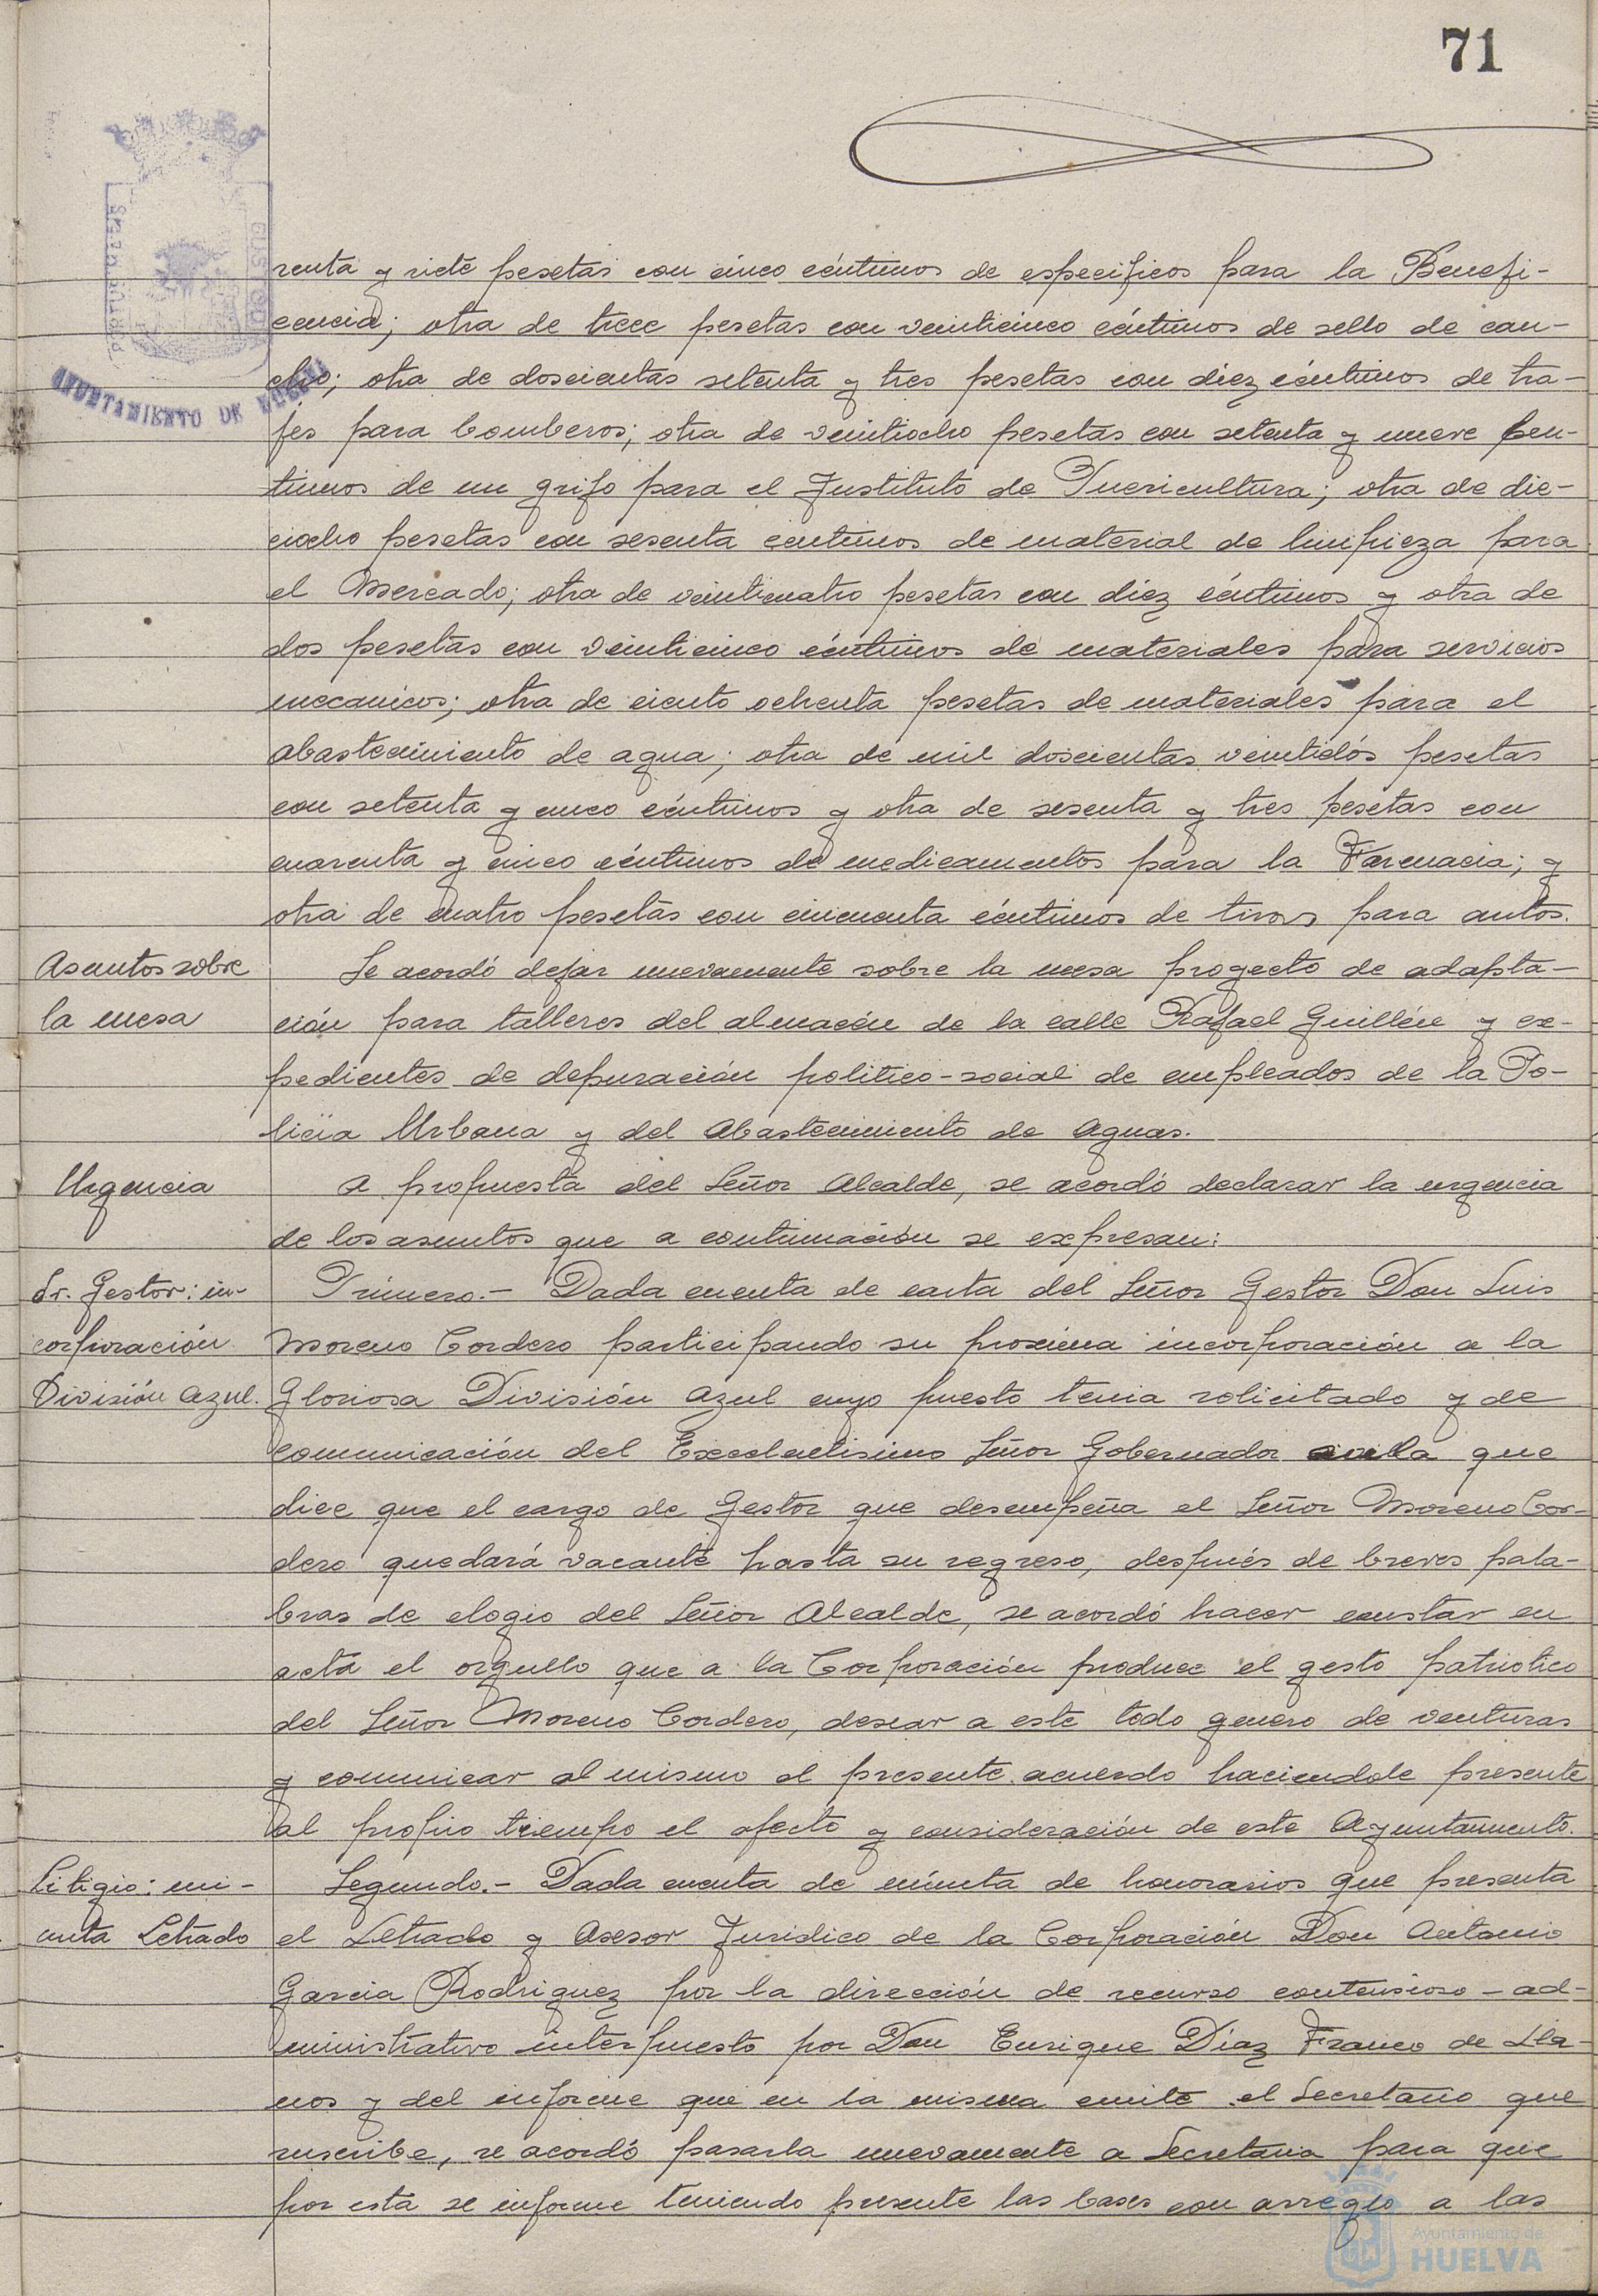 71
renta y siete pesetas con cinco céntimos de especificos para la Benefi-
cencia; otra de trece pesetas con veinticinco céntimos de sello de cau-
cho; otra de doscientas setenta y tres pesetas con diez céntimos de tra-
jes para bomberos; otra de veintiocho pesetas con setenta y nueve cen-
timos de un grifo para el Instituto de Puericultura; otra de die-
ciocho pesetas con sesenta centimos de material de limpieza para
el Mercado; otra de veinticuatro pesetas con diez céntimos y otra de
dos pesetas con veinticinco céntimos de materiales para servicios
mecanicos; otra de ciento ochenta pesetas de materiales para el
abastecimiento de agua; otra de mil doscientas veintidós pesetas
con setenta y cinco céntimos y otra de sesenta y tres pesetas con
cuarenta y cinco céntimos de medicamentos para la Farmacia; y
otra de cuatro pesetas con cincuenta céntimos de tiros para autos.
Asuntos sobre
la mesa
Se acordó dejar nuevamente sobre la mesa proyecto de adapta-
ción para talleres del almacén de la calle Rafael Guillén y ex-
pedientes de depuración politico-social de empleados de la Po-
licia Urbana y del Abastecimiento de Aguas.
Urgencia
A propuesta del Señor Alcalde, se acordó declarar la urgencia
de los asuntos que a continuación se expresan:
Sr. Gestor: in-
corporación
División Azul.
Primero.- Dada cuenta de carta del Señor Gestor Don Luis
Moreno Cordero participando su proxima incorporación a la
Gloriosa División Azul cuyo puesto tenia solicitado y de
comunicación del Excelentisimo Señor Gobernador en la que
dice que el cargo de Gestor que desempeña el Señor Moreno Cor-
dero quedará vacante hasta su regreso, después de breves pala-
bras de elogio del Señor Alcalde, se acordó hacer constar en
acta el orgullo que a la Corporación produce el gesto patriotico
del Señor Moreno Cordero, desear a este todo genero de venturas
y comunicar al mismo el presente acuerdo haciendole presente
al propio tiempo el afecto y consideración de este Ayuntamiento.
Litigio: mi-
nuta Letrado
Segundo.- Dada cuenta de minuta de honorarios que presenta
el Letrado y Asesor Juridico de la Corporación Don Antonio
Garcia Rodriguez por la dirección de recurso contensioso-ad-
ministrativo interpuesto por Don Enrique Díaz Franco de Lla-
nos y del informe que en la misma emite el Secretario que
suscribe, se acordó pasarla nuevamente a Secretaria para que
por esta se informe teniendo presente las bases con arreglo a las
AYUNTAMIENTO DE HUELVA
Ayuntamiento de
HUELVA